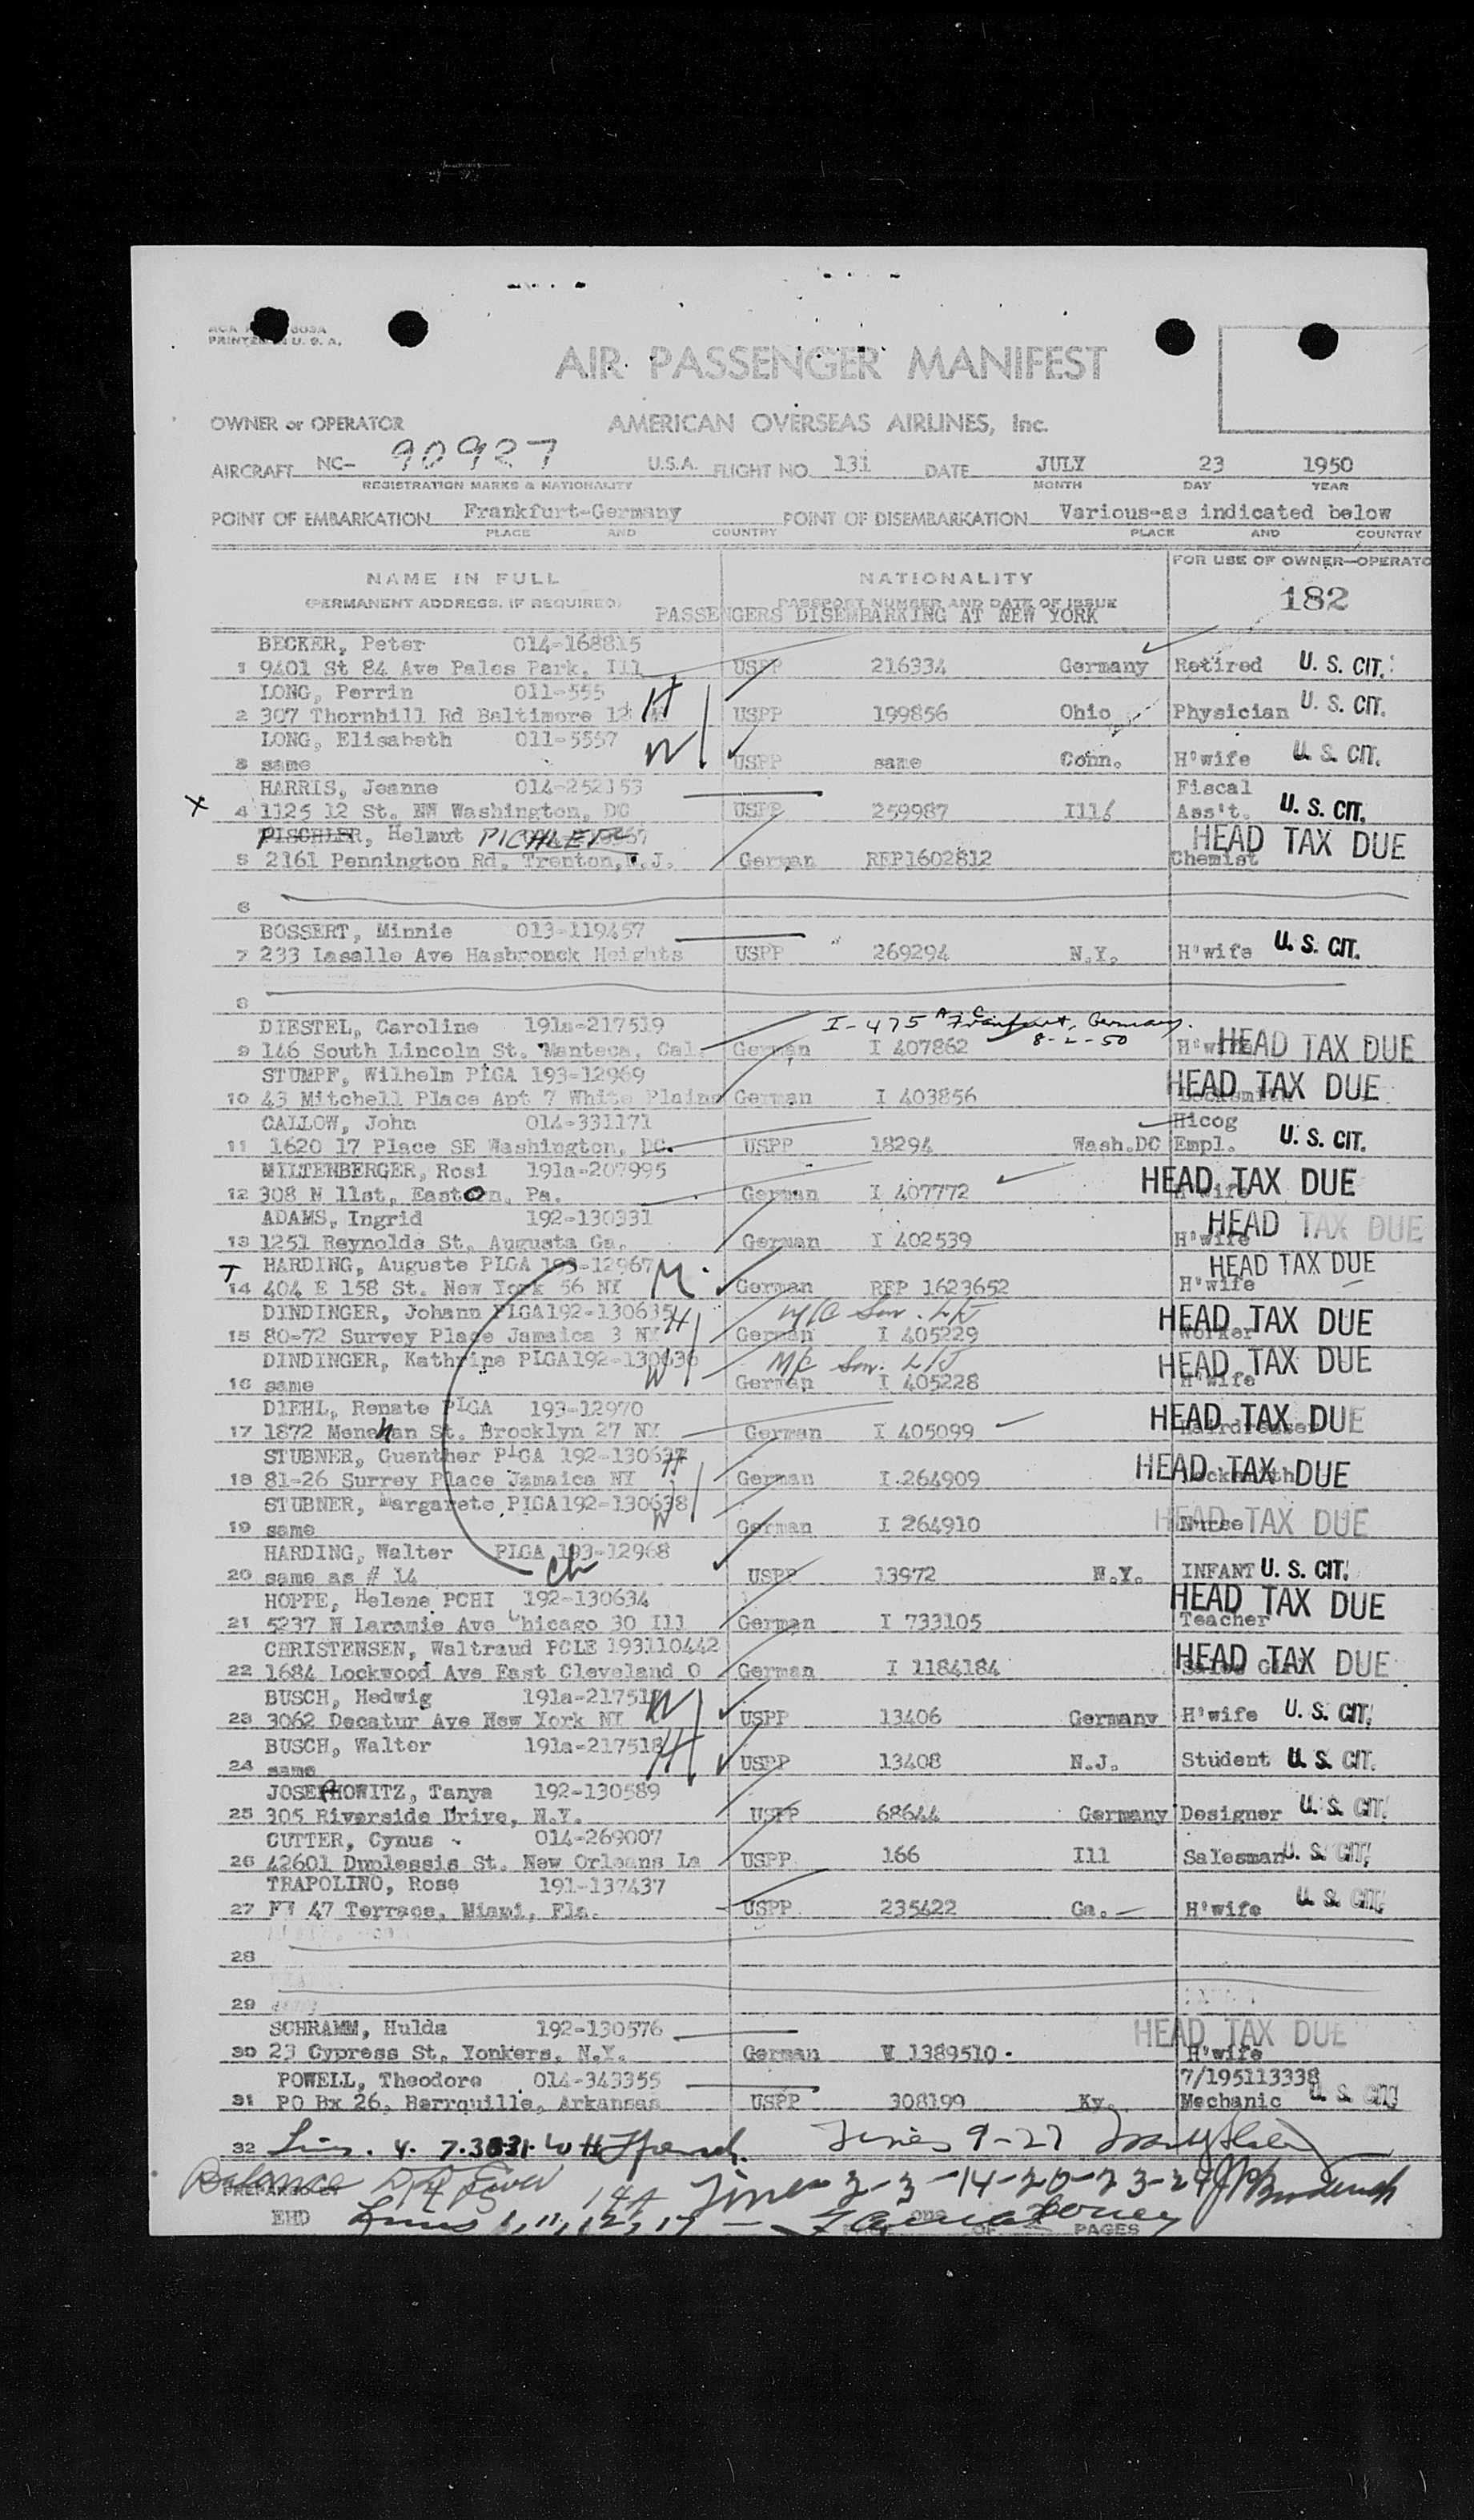 PRINTED IN U. S. A.
AIR PASSENGER MANIFEST
OWNER or OPERATOR AMERICAN OVERSEAS AIRLINES, Inc.
AIRCRAFT NC- 90927 U.S.A. FLIGHT NO. 131 DATE JULY 23 1950
REGISTRATION MARKS & NATIONALITY MONTH DAY YEAR
POINT OF EMBARKATION Frankfurt-Germany POINT OF DISEMBARKATION Various-as indicated below
PLACE AND COUNTRY PLACE AND COUNTRY
NAME IN FULL NATIONALITY FOR USE OF OWNER—OPERATO
(PERMANENT ADDRESS, IF REQUIRED) PASSPORT NUMBER AND DATE OF ISSUE 182
PASSENGERS DISEMBARKING AT NEW YORK
BECKER, Peter 014-168815
1 9401 St 84 Ave Palos Park, Ill USPP 216334 Germany Retired U. S. CIT.
LONG, Perrin 011-555 H
2 307 Thornhill Rd Baltimore 12 USPP 199856 Ohio Physician U. S. CIT.
LONG, Elisabeth 011-5557 W
3 same USPP same Conn. H'wife U. S. CIT.
HARRIS, Jeanne 014-252153 Fiscal
X 4 1125 12 St. NW Washington, DC USPP 259987 Ill Ass't. U. S. CIT.
PISCHLER, Helmut PICHLER HEAD TAX DUE
5 2161 Pennington Rd, Trenton, N.J. German RFP1602812 Chemist
6
BOSSERT, Minnie 013-119457
7 233 Lasalle Ave Hasbronck Heights USPP 269294 N.Y. H'wife U. S. CIT.
8
DIESTEL, Caroline 191a-217519 I-475 Frankfurt, Germany.
8-2-50
9 146 South Lincoln St. Manteca, Cal. German I 407862 H'wife HEAD TAX DUE
STUMPF, Wilhelm PLGA 193-12969 HEAD TAX DUE
10 43 Mitchell Place Apt 7 White Plains German I 403856 Locksmith
CALLOW, John 014-331171 Hicog
11 1620 17 Place SE Washington, DC. USPP 18294 Wash.DC Empl. U. S. CIT.
MILTENBERGER, Rosi 191a-207995 HEAD TAX DUE
12 308 N 11st, Easton, Pa. German I 407772 H'wife
ADAMS, Ingrid 192-130331 HEAD TAX DUE
13 1251 Reynolds St. Augusta Ga. German I 402539 H'wife
T HARDING, Auguste PLGA 193-12967 M HEAD TAX DUE
14 404 E 158 St. New York 56 NY German RFP 1623652 H'wife
DINDINGER, Johann PLGA192-130635 H HEAD TAX DUE
15 80-72 Survey Place Jamaica 3 NY German I 405229 Worker
DINDINGER, Kathrine PLGA192-130636 W HEAD TAX DUE
16 same German I 405228 H'wife
DIEHL, Renate PLGA 193-12970 HEAD TAX DUE
17 1872 Menehan St. Brooklyn 27 NY German I 405099 Hairdresser
STUBNER, Guenther PLGA 192-130637 H HEAD TAX DUE
18 81-26 Surrey Place Jamaica NY German I 264909 Locksmith
STUBNER, Margarete PLGA192-130638 W
19 same German I 264910 Nurse HEAD TAX DUE
HARDING, Walter PLGA 193-12968 ch
20 same as # 14 USPP 13972 N.Y. INFANT U. S. CIT.
HOPPE, Helene PCHI 192-130634 HEAD TAX DUE
21 5237 N Laramie Ave Chicago 30 Ill German I 733105 Teacher
CHRISTENSEN, Waltraud PCLE 193110442 HEAD TAX DUE
22 1684 Lockwood Ave East Cleveland O German I 1184184
BUSCH, Hedwig 191a-217517 W
23 3062 Decatur Ave New York NY USPP 13406 Germany H'wife U. S. CIT.
BUSCH, Walter 191a-217518 H
24 same USPP 13408 N.J. Student U. S. CIT.
JOSEPHOWITZ, Tanya 192-130589
25 305 Riverside Drive, N.Y. USPP 68644 Germany Designer U. S. CIT.
CUTTER, Cynus 014-269007
26 42601 Duplessis St. New Orleans La USPP 166 Ill Salesman U. S. CIT.
TRAPOLINO, Rose 191-137437
27 47 Terrace, Miami, Fla. USPP 235422 Ga. H'wife U. S. CIT.
28
29
SCHRAMM, Hulda 192-130576 HEAD TAX DUE
30 23 Cypress St. Yonkers, N.Y. German W 1389510 H'wife
POWELL, Theodore 014-343355 7/195113338
31 PO Bx 26, Berrquille, Arkansas USPP 308199 Ky. Mechanic U. S. CIT.
32 Lines 9-27
Balance 14A Lines 2-3-14-20-23-24
PREPARED BY
EHD Lines 1, 11, 12, 17 — one OF PAGES